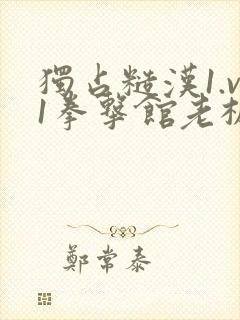 獨占糙漢1.v
1拳擊館老板
鄭常泰